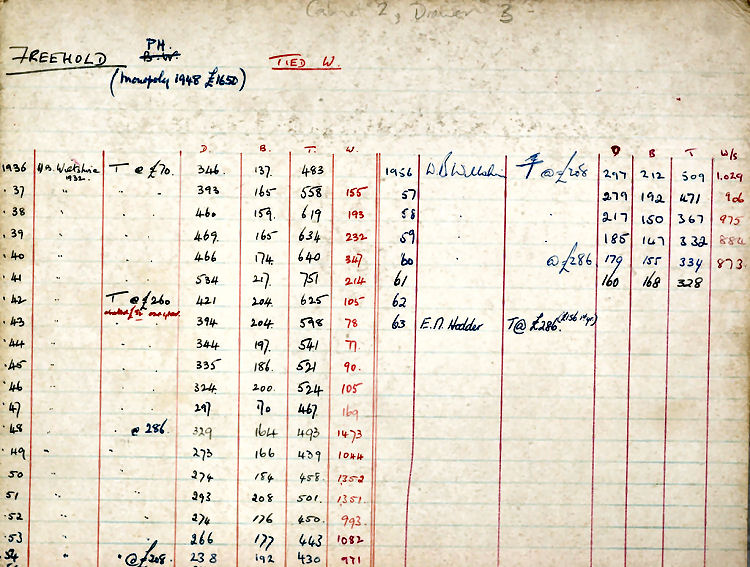 Cabinet 2, Drawer 3
FREEHOLD PH. B.W. TIED W.
(Monopoly 1948 £1650)
D. B. T. W. D B T W/s
1936 H.B. Wiltshire 1932. T @ £70. 346. 137. 483 1956 @ £208 297 212 509 1.029
.37 " " . 393 165 558 155 57 279 192 471 906
.38 " " . 460 159. 619 193 58 " . 217 150 367 975
.39 " " . 469. 165 634 232 59 " . 185 147 332 884
.40 " " . 466 174 640 347 60 @ £286. 179 155 334 873.
.41 " 534 217. 751 214 61 160 168 328
.42 " T @ £260 421 204 625 105 62
.43 " 394 204 598 78 63 E.N. Hodder T@ £286. (£156 1st yr.)
.44 " 344 197. 541 77.
.45 " 335 186. 521 90.
.46 " 324. 200. 524 105
.47 " 297 170 467. 169
.48 " @ 286. 329 164 493 1473
.49 " 273 166 439 1044
.50 " 274 184 458. 1352
.51 " 293 208 501. 1351.
.52 " 274 176 450. 993.
.53 " 266 177 443 1082
.54 " @ £208. 238 192 430 971